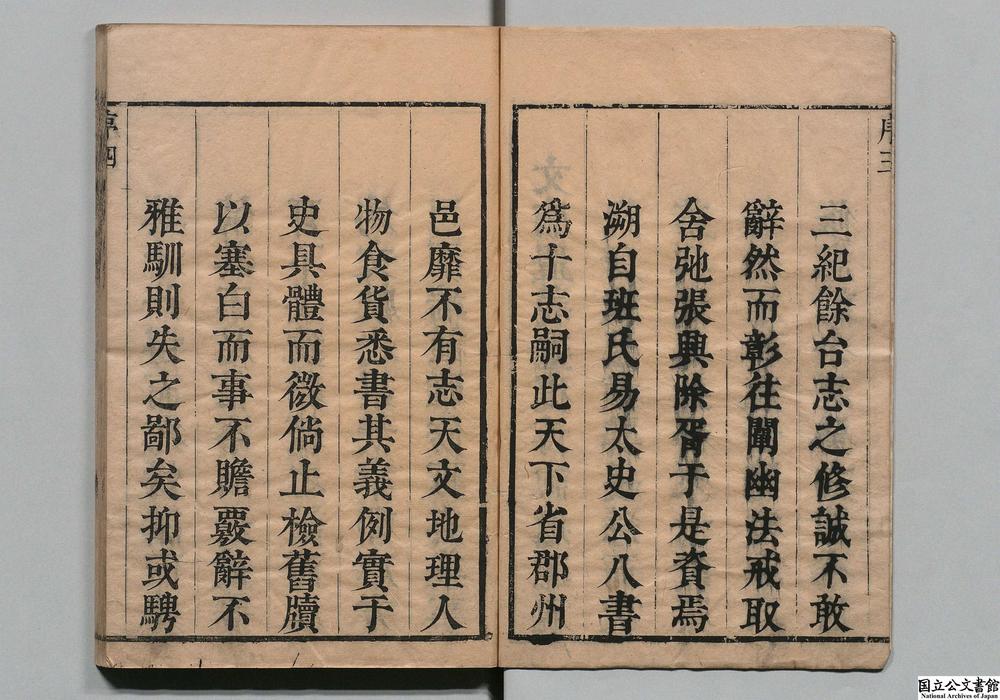 序三
三紀餘台志之修誠不敢
辭然而彰往闡幽法戒取
舍弛張興除胥于是資焉
溯自班氏易太史公八書
爲十志嗣此天下省郡州
邑靡不有志天文地理人
物食貨悉書其義例實于
史具體而微倘止檢舊牘
以塞白而事不贍覈辭不
雅馴則失之鄙矣抑或騁
序四
国立公文書館
National Archives of Japan